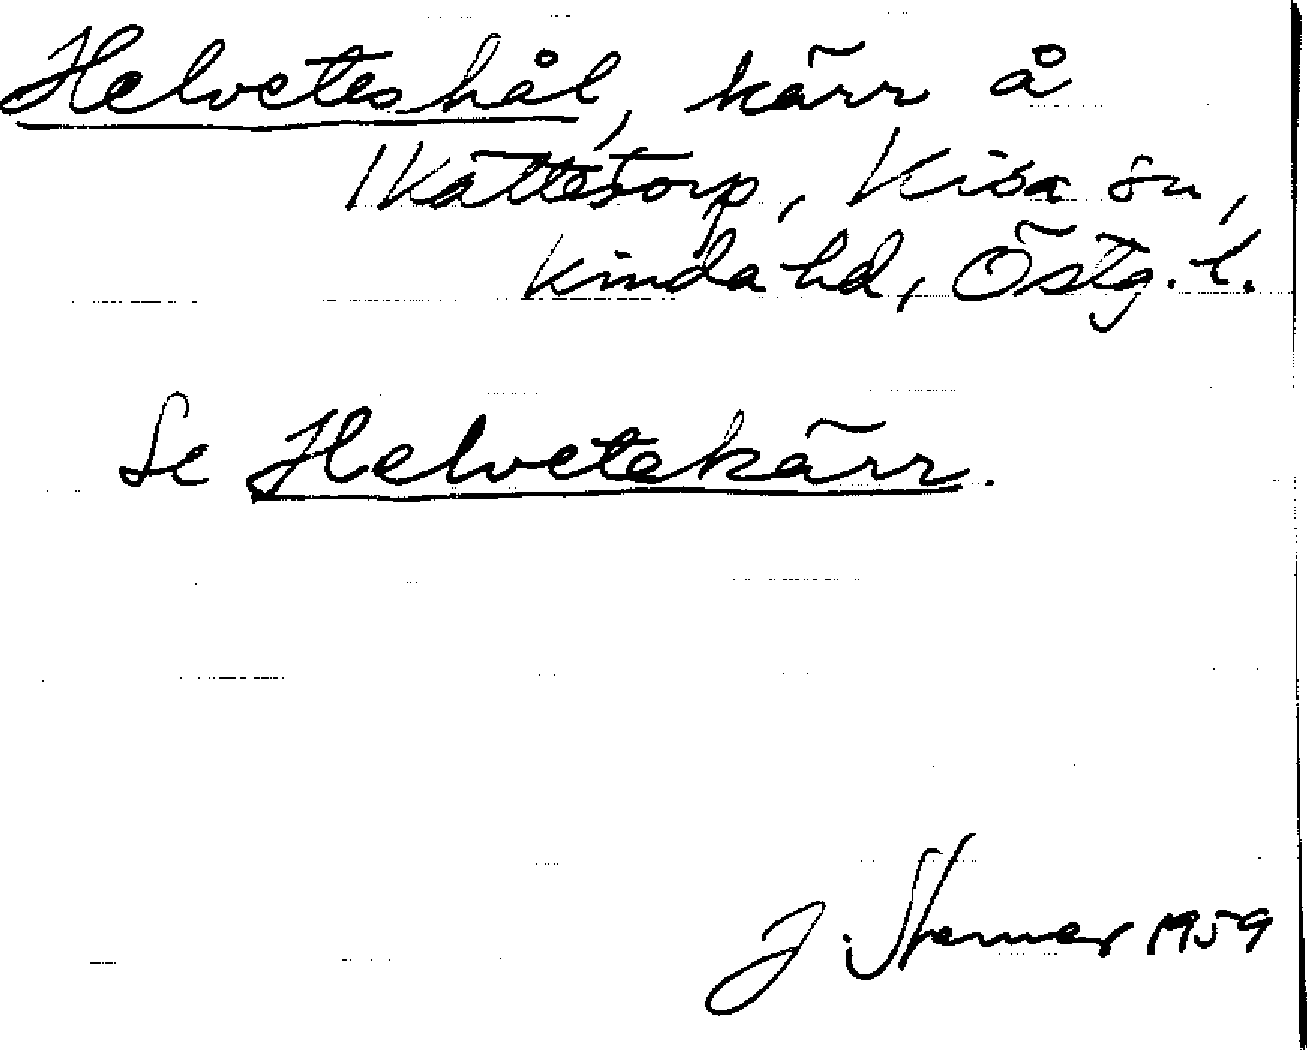 Helveteshål, kärr å
1 Kättetorp, Kisa sn,
Kinda hd, Östg. l.
Se Helvetekärr.
J. Sterner 1959